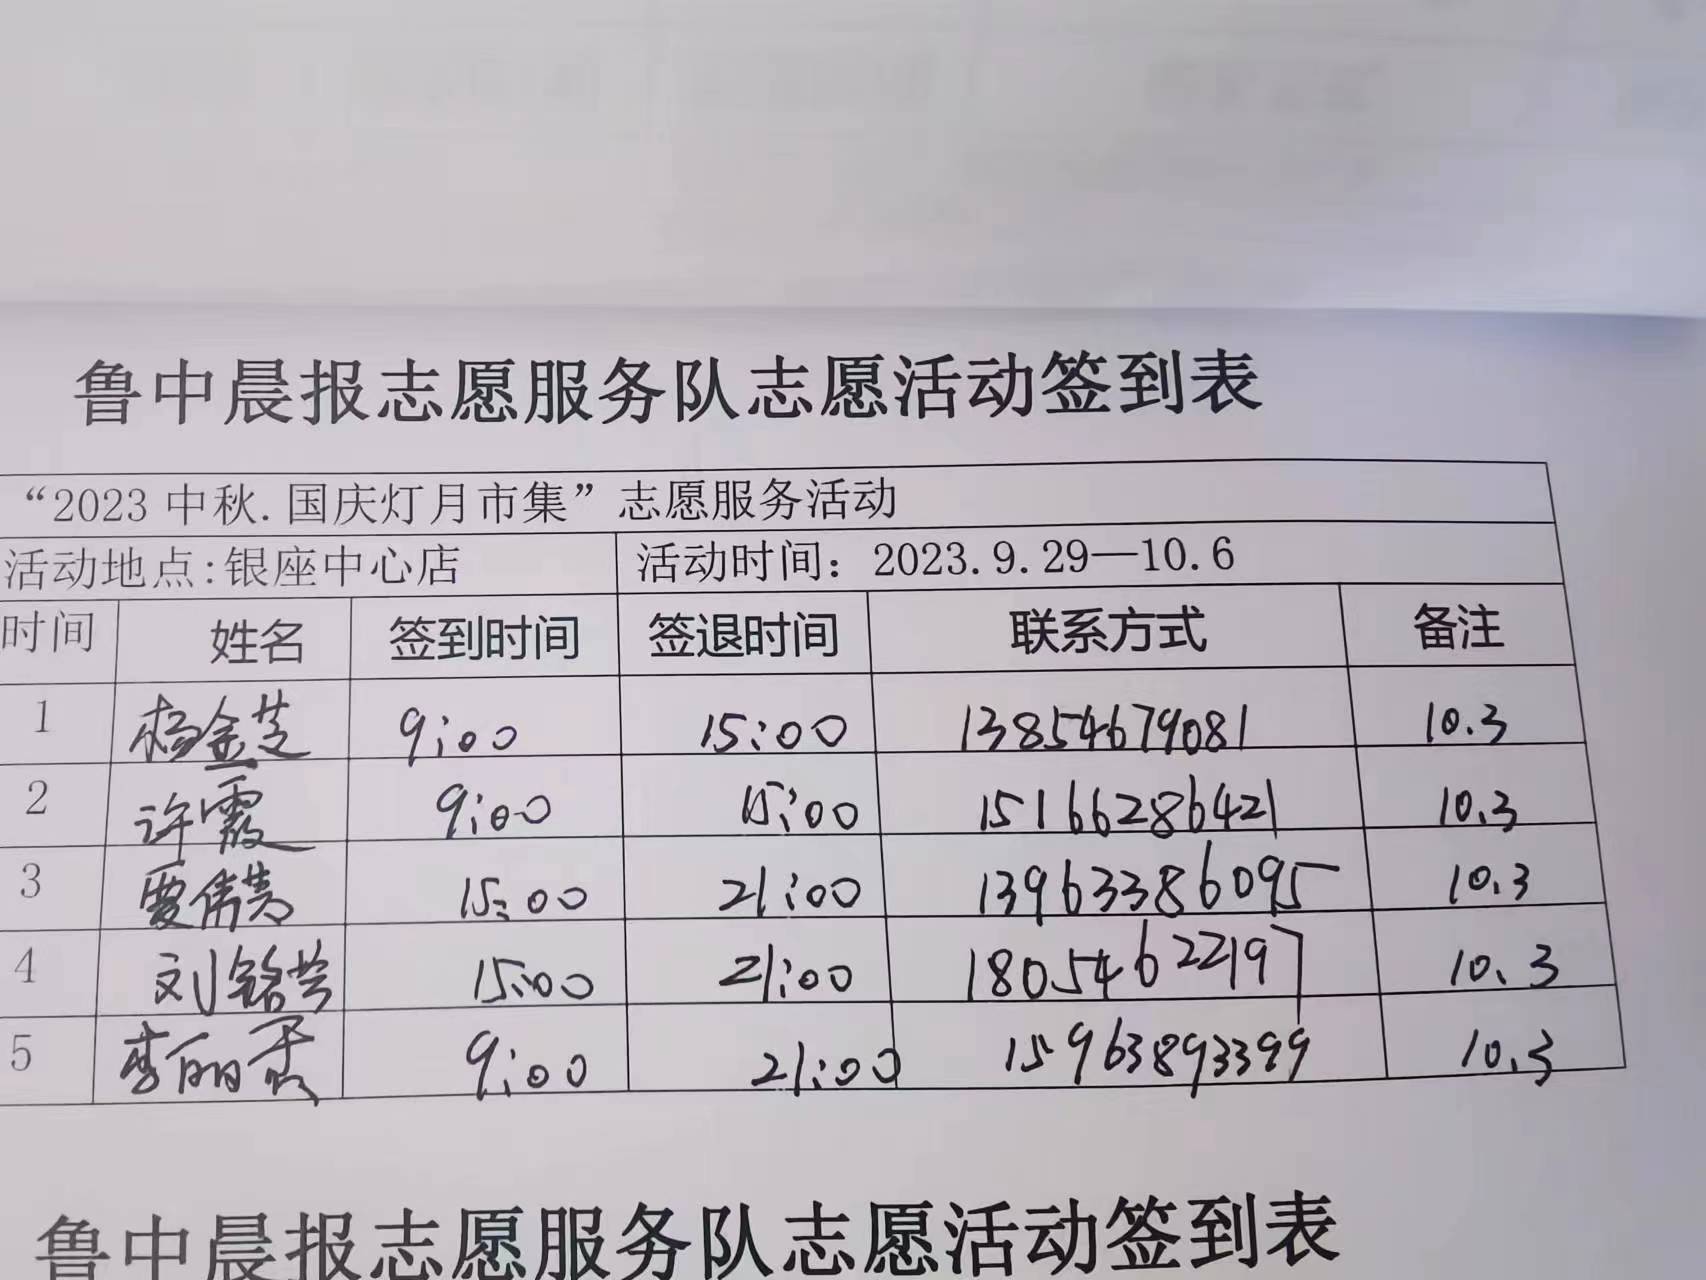 鲁中晨报志愿服务队志愿活动签到表
“2023 中秋.国庆灯月市集”志愿服务活动
活动地点:银座中心店 活动时间：2023.9.29—10.6
时间 姓名 签到时间 签退时间 联系方式 备注
1 杨金芝 9:00 15:00 13854679081 10.3
2 许霞 9:00 15:00 15166286421 10.3
3 15:00 21:00 13963386095 10.3
4 刘铭芸 15:00 21:00 18054622197 10.3
5 李丽霞 9:00 21:00 15963893399 10.3
鲁中晨报志愿服务队志愿活动签到表